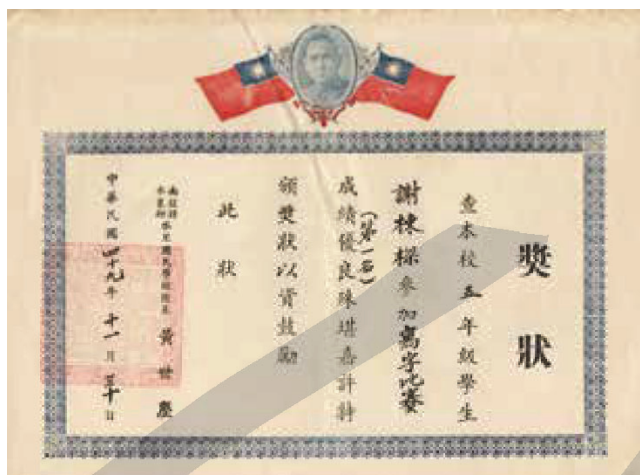 獎狀
查本校五年級學生
謝棟樑參加寫字比賽
(第一名)
成績優良殊堪嘉許特
頒獎狀以資鼓勵
此狀
南投縣
國民學校校長 黃世
中華民國四十九年十一月三十日